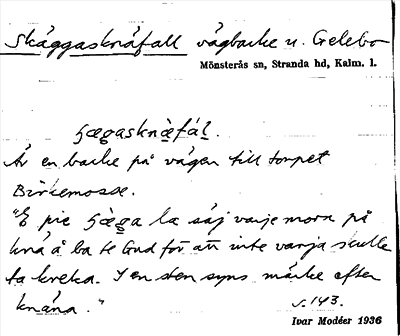 Skäggasknäfall vägbacke v. Gelebo
Mönsterås sn, Stranda hd, Kalm. l.
ʃægasknæfál.
Är en backe på vägen till torpet
Birkemosse.
"E pie ʃæga la säj varje morn på
knä å ba te Gud för att inte varja skulle
ta kreka. I en sten syns märke efter
knäna."
s. 143.
Ivar Modéer 1936